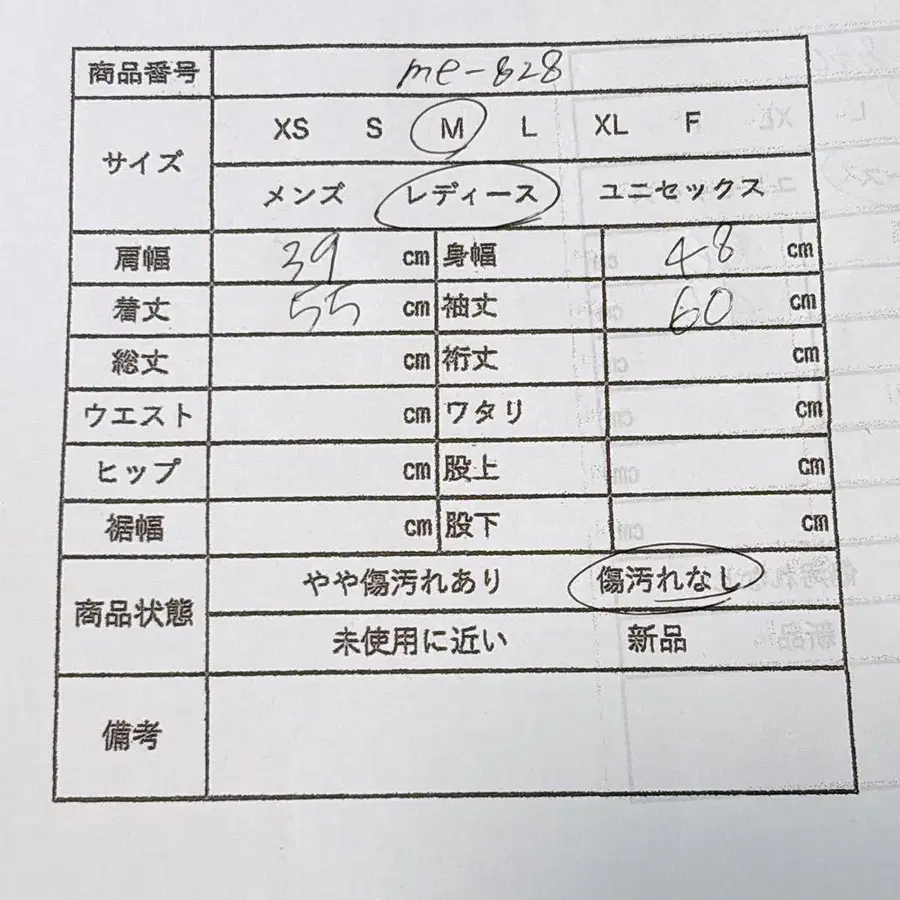 商品番号 me-828
サイズ XS S M L XL F
メンズ レディース ユニセックス
肩幅 39 cm 身幅 48 cm
着丈 55 cm 袖丈 60 cm
総丈 cm 裄丈 cm
ウエスト cm ワタリ cm
ヒップ cm 股上 cm
裾幅 cm 股下 cm
商品状態 やや傷汚れあり 傷汚れなし
未使用に近い 新品
備考